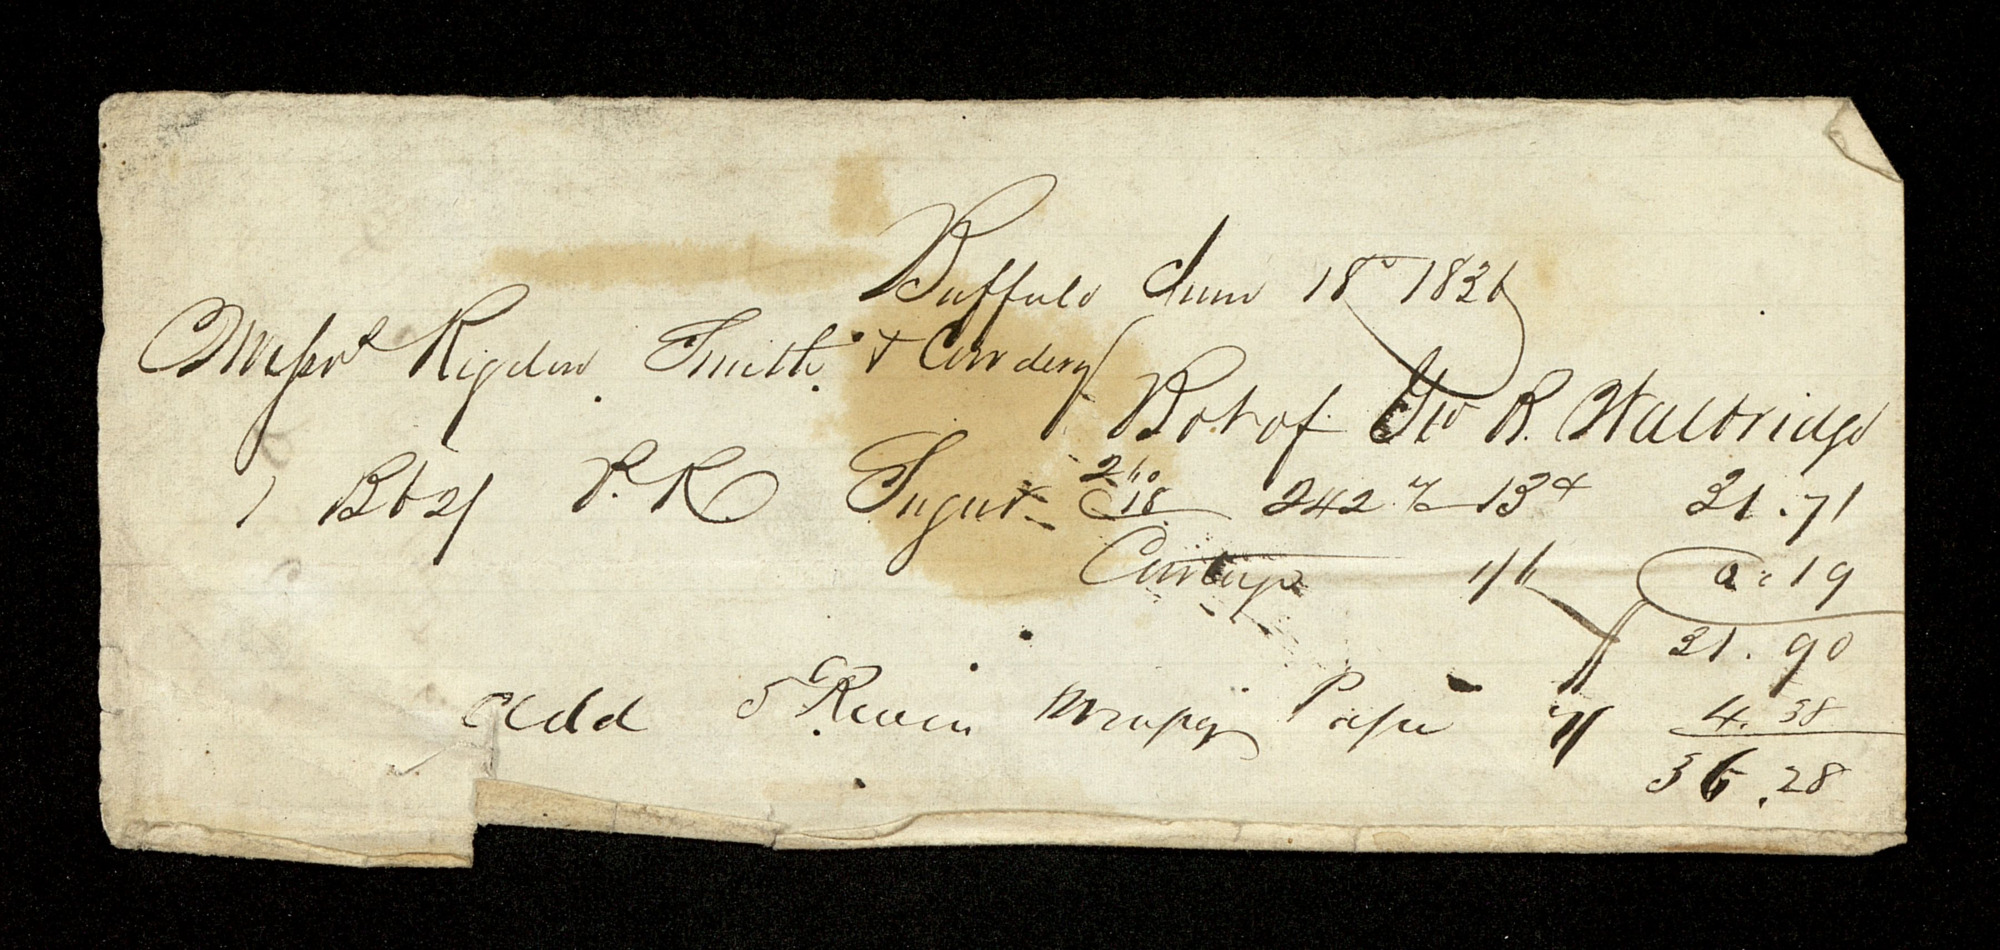 Buffalo June 18 1836
Messrs Rigdon Smith & Cowdery
Bot of Geo R. Walbridge
1 Bbl P.R Sugar 260
18 242 @ 13 31.71
Cartage 1/6 0.19
31.90
Add 5 Ream Wrapg Paper 7/ 4.38
36.28